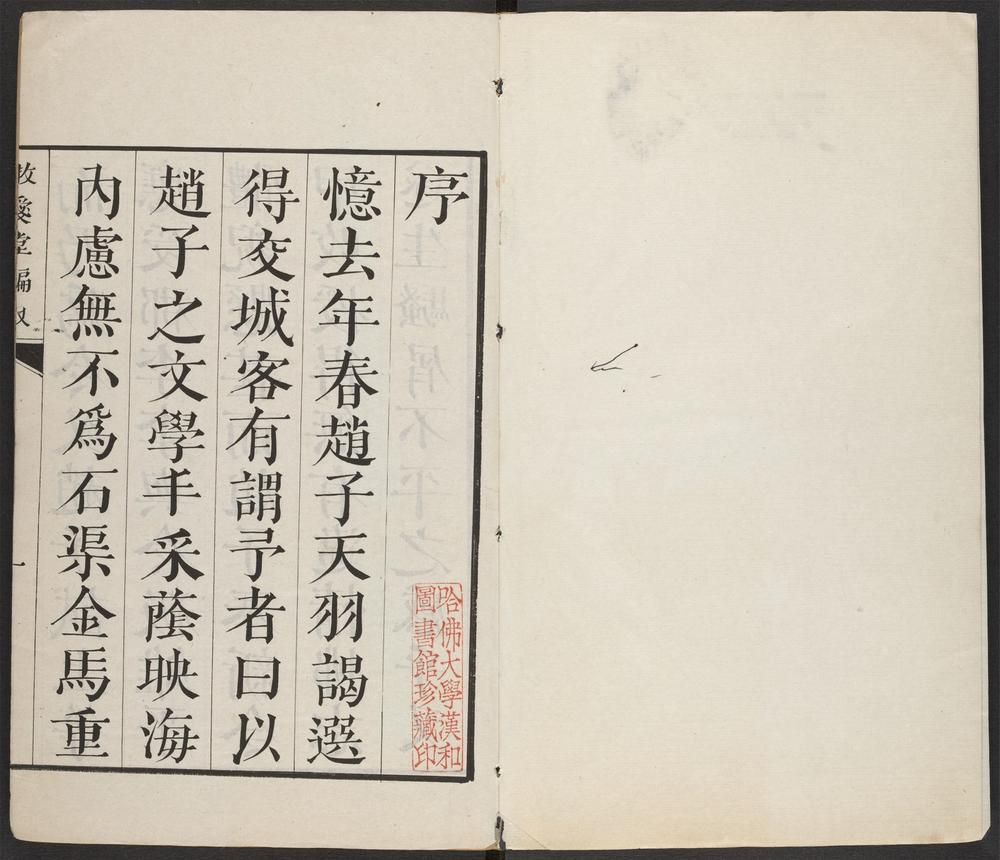 序
憶去年春趙子天羽謁選
得交城客有謂予者曰以
趙子之文學丰采蔭映海
內慮無不爲石渠金馬重
哈佛大學漢和
圖書館珍藏印
堂編
一